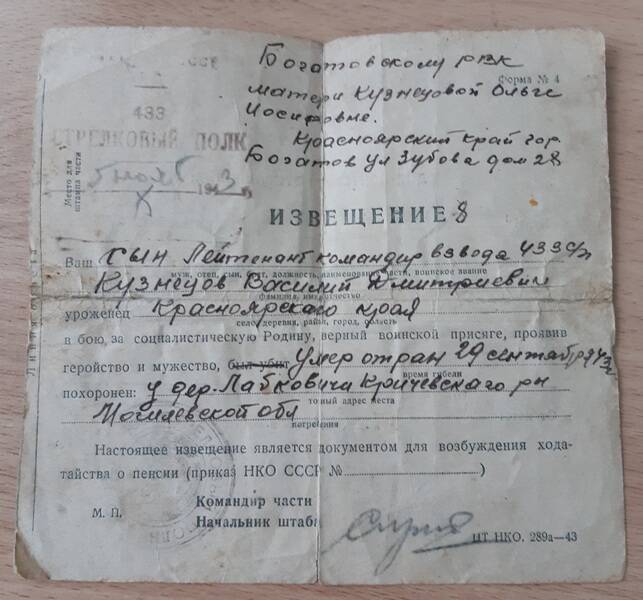 Богатовскому РВК
Форма № 4
матери Кузнецовой Ольге
Иосифовне.
433
Красноярский край гор.
СТРЕЛКОВЫЙ ПОЛК
Богатов ул Зубова дом 28
Место для
штампа части
X 1943
ИЗВЕЩЕНИЕ 8
Ваш сын Лейтенант командир взвода 433 с/п
муж, отец, сын, брат, должность, наименование части, воинское звание
Кузнецов Василий Дмитриевич
фамилия, имя, отчество
уроженец Красноярского края
село, деревня, район, город, область
в бою, за социалистическую Родину, верный воинской присяге, проявив
геройство и мужество, был убит Умер от ран 29 сентября 43
время гибели
похоронен: у дер. Лабковичи Кричевского рн
точный адрес места
Могилевской обл
погребения
Настоящее извещение является документом для возбуждения хода-
тайства о пенсии (приказ НКО СССР № )
Командир части
М. П.
Начальник штаба
ЦТ НКО. 289а—43